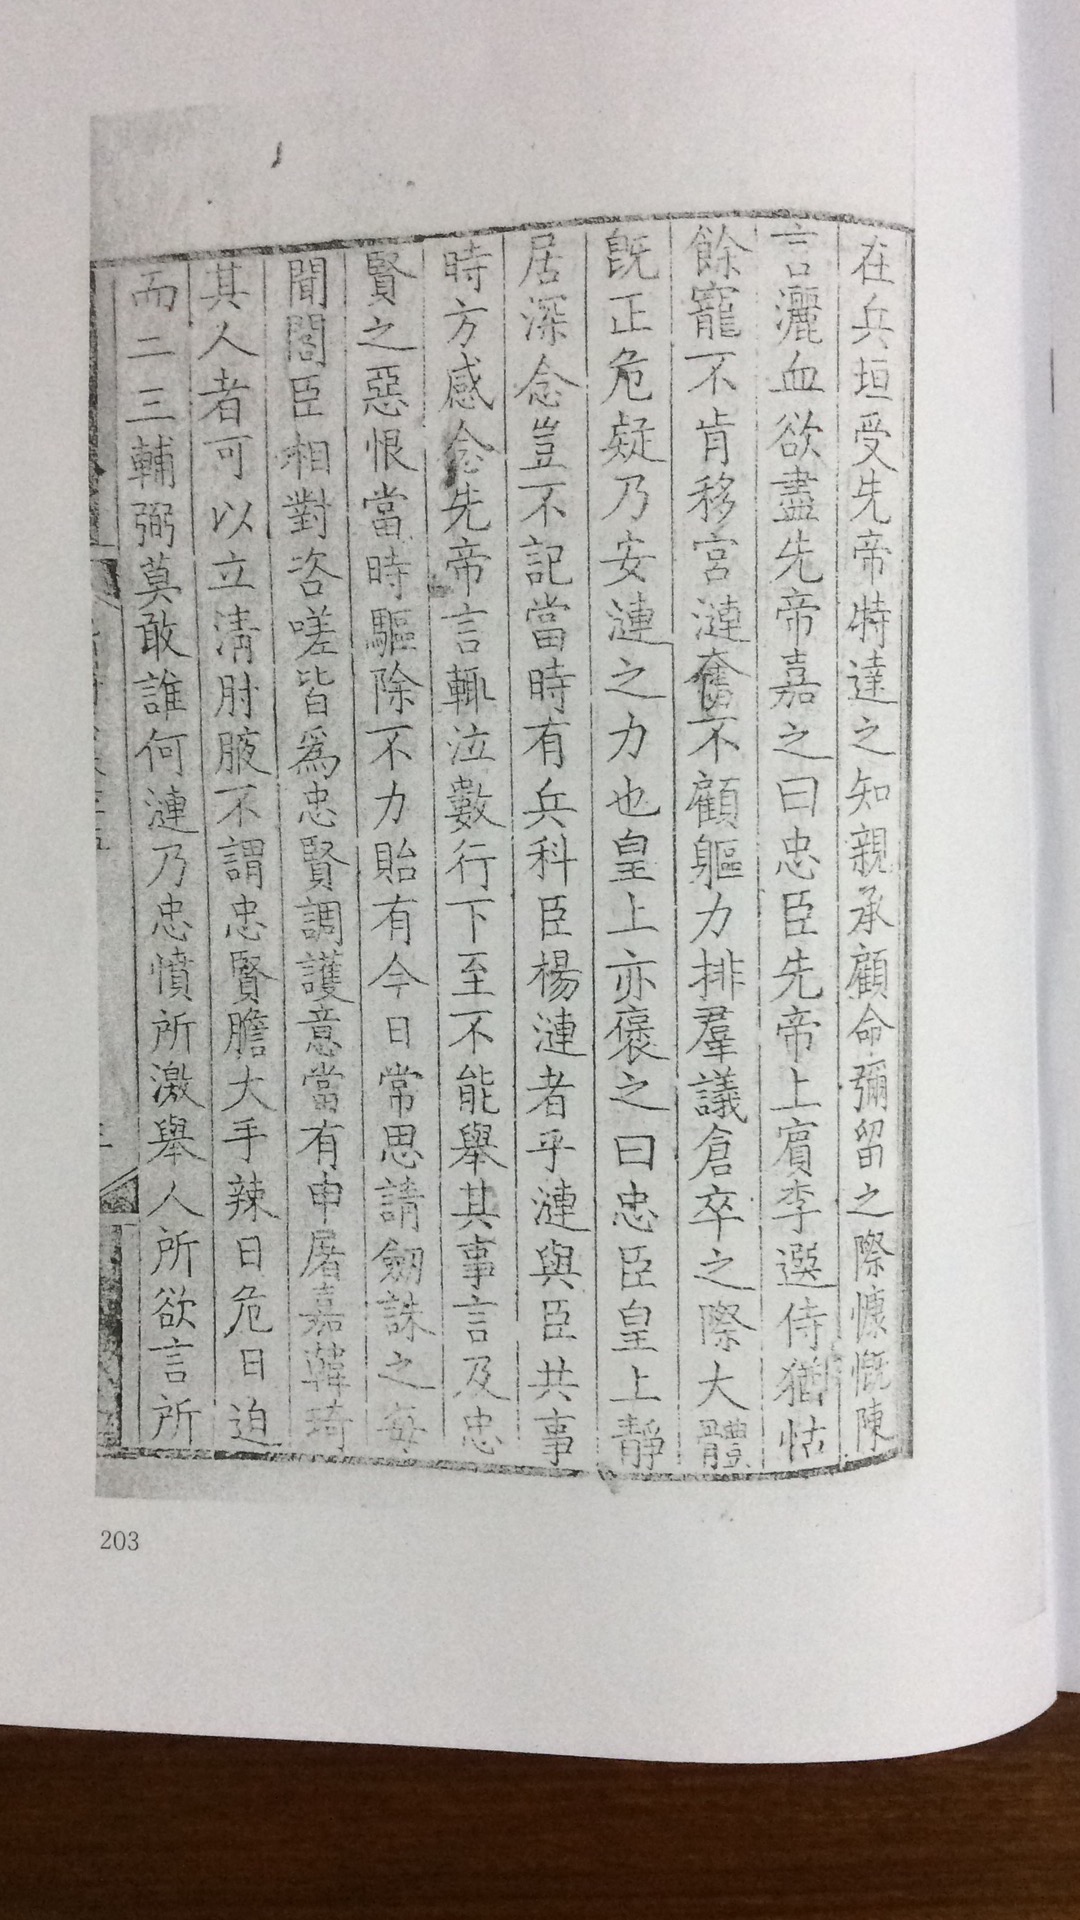 在兵垣受先帝特達之知親承顧命彌留之際慷慨陳
言灑血欲盡先帝嘉之曰忠臣先帝上賓李選侍猶怙
餘寵不肯移宮漣奮不顧軀力排羣議倉卒之際大體
旣正危疑乃安漣之力也皇上亦褒之曰忠臣皇上靜
居深念豈不記當時有兵科臣楊漣者乎漣與臣共事
時方感念先帝言輒泣數行下至不能舉其事言及忠
賢之惡恨當時驅除不力貽有今日常思請劒誅之每
聞閣臣相對咨嗟皆爲忠賢調護意當有申屠嘉韓琦
其人者可以立淸肘腋不謂忠賢膽大手辣日危日迫
而二三輔弼莫敢誰何漣乃忠憤所激舉人所欲言所
203